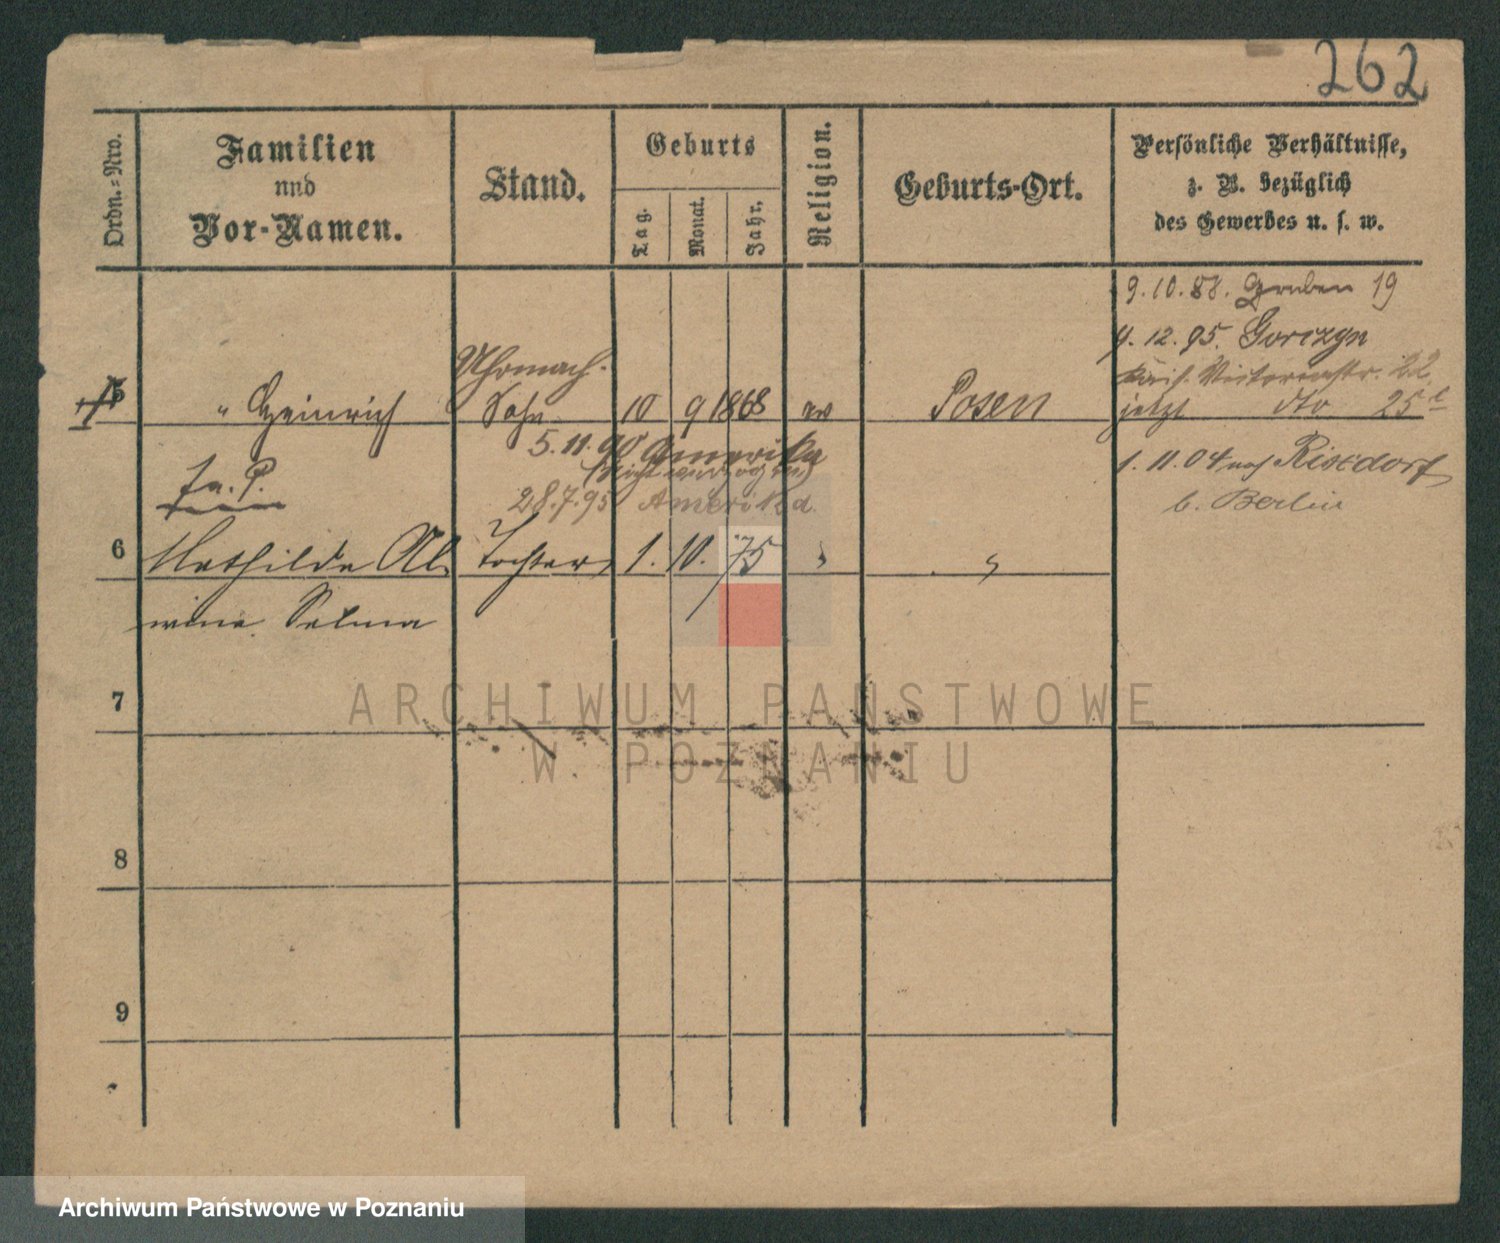 262
Ordn.-Nro.
Familien
und
Vor-Namen.
Stand.
Geburts
Tag.
Monat.
Jahr.
Religion.
Geburts-Ort.
Persönliche Verhältnisse,
z. B. bezüglich
des Gewerbes u. s. w.
9.10.88. Graben 19
4.12.95. Gorczyn
Victoriastr. 22
jetzt dto 25
5 " Heinrich Uhrmach.
Sohn 10 9 1868 ev Posen
5.11.90 Amerika
28.7.95 Amerika
1.11.04 nach Rixdorf
b. Berlin
6 Mathilde Al Tochter 1. 10. 75 " "
wine Selma
7
8
9
ARCHIWUM PAŃSTWOWE
W POZNANIU
Archiwum Państwowe w Poznaniu